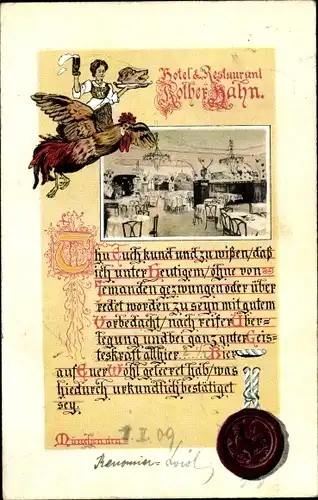 Hotel & Restaurant
Rother Hahn.
Thu Euch kund und zu wißen/daß
ich unter Heutigem/ohne von
Jemanden gezwungen oder über
redet worden zu seyn mit gutem
Vorbedacht/nach reifer Über-
legung und bei ganz guter Geis-
teskraft allhier Bier
auf Euer Wohl geleeret hab/was
hiedurch urkundlich bestätiget
sey.
München den 1.I.09